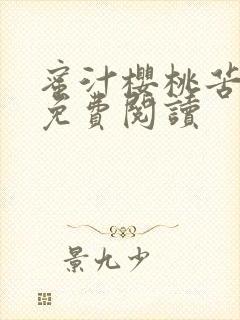 蜜汁櫻桃苦
免費閱讀
景九少